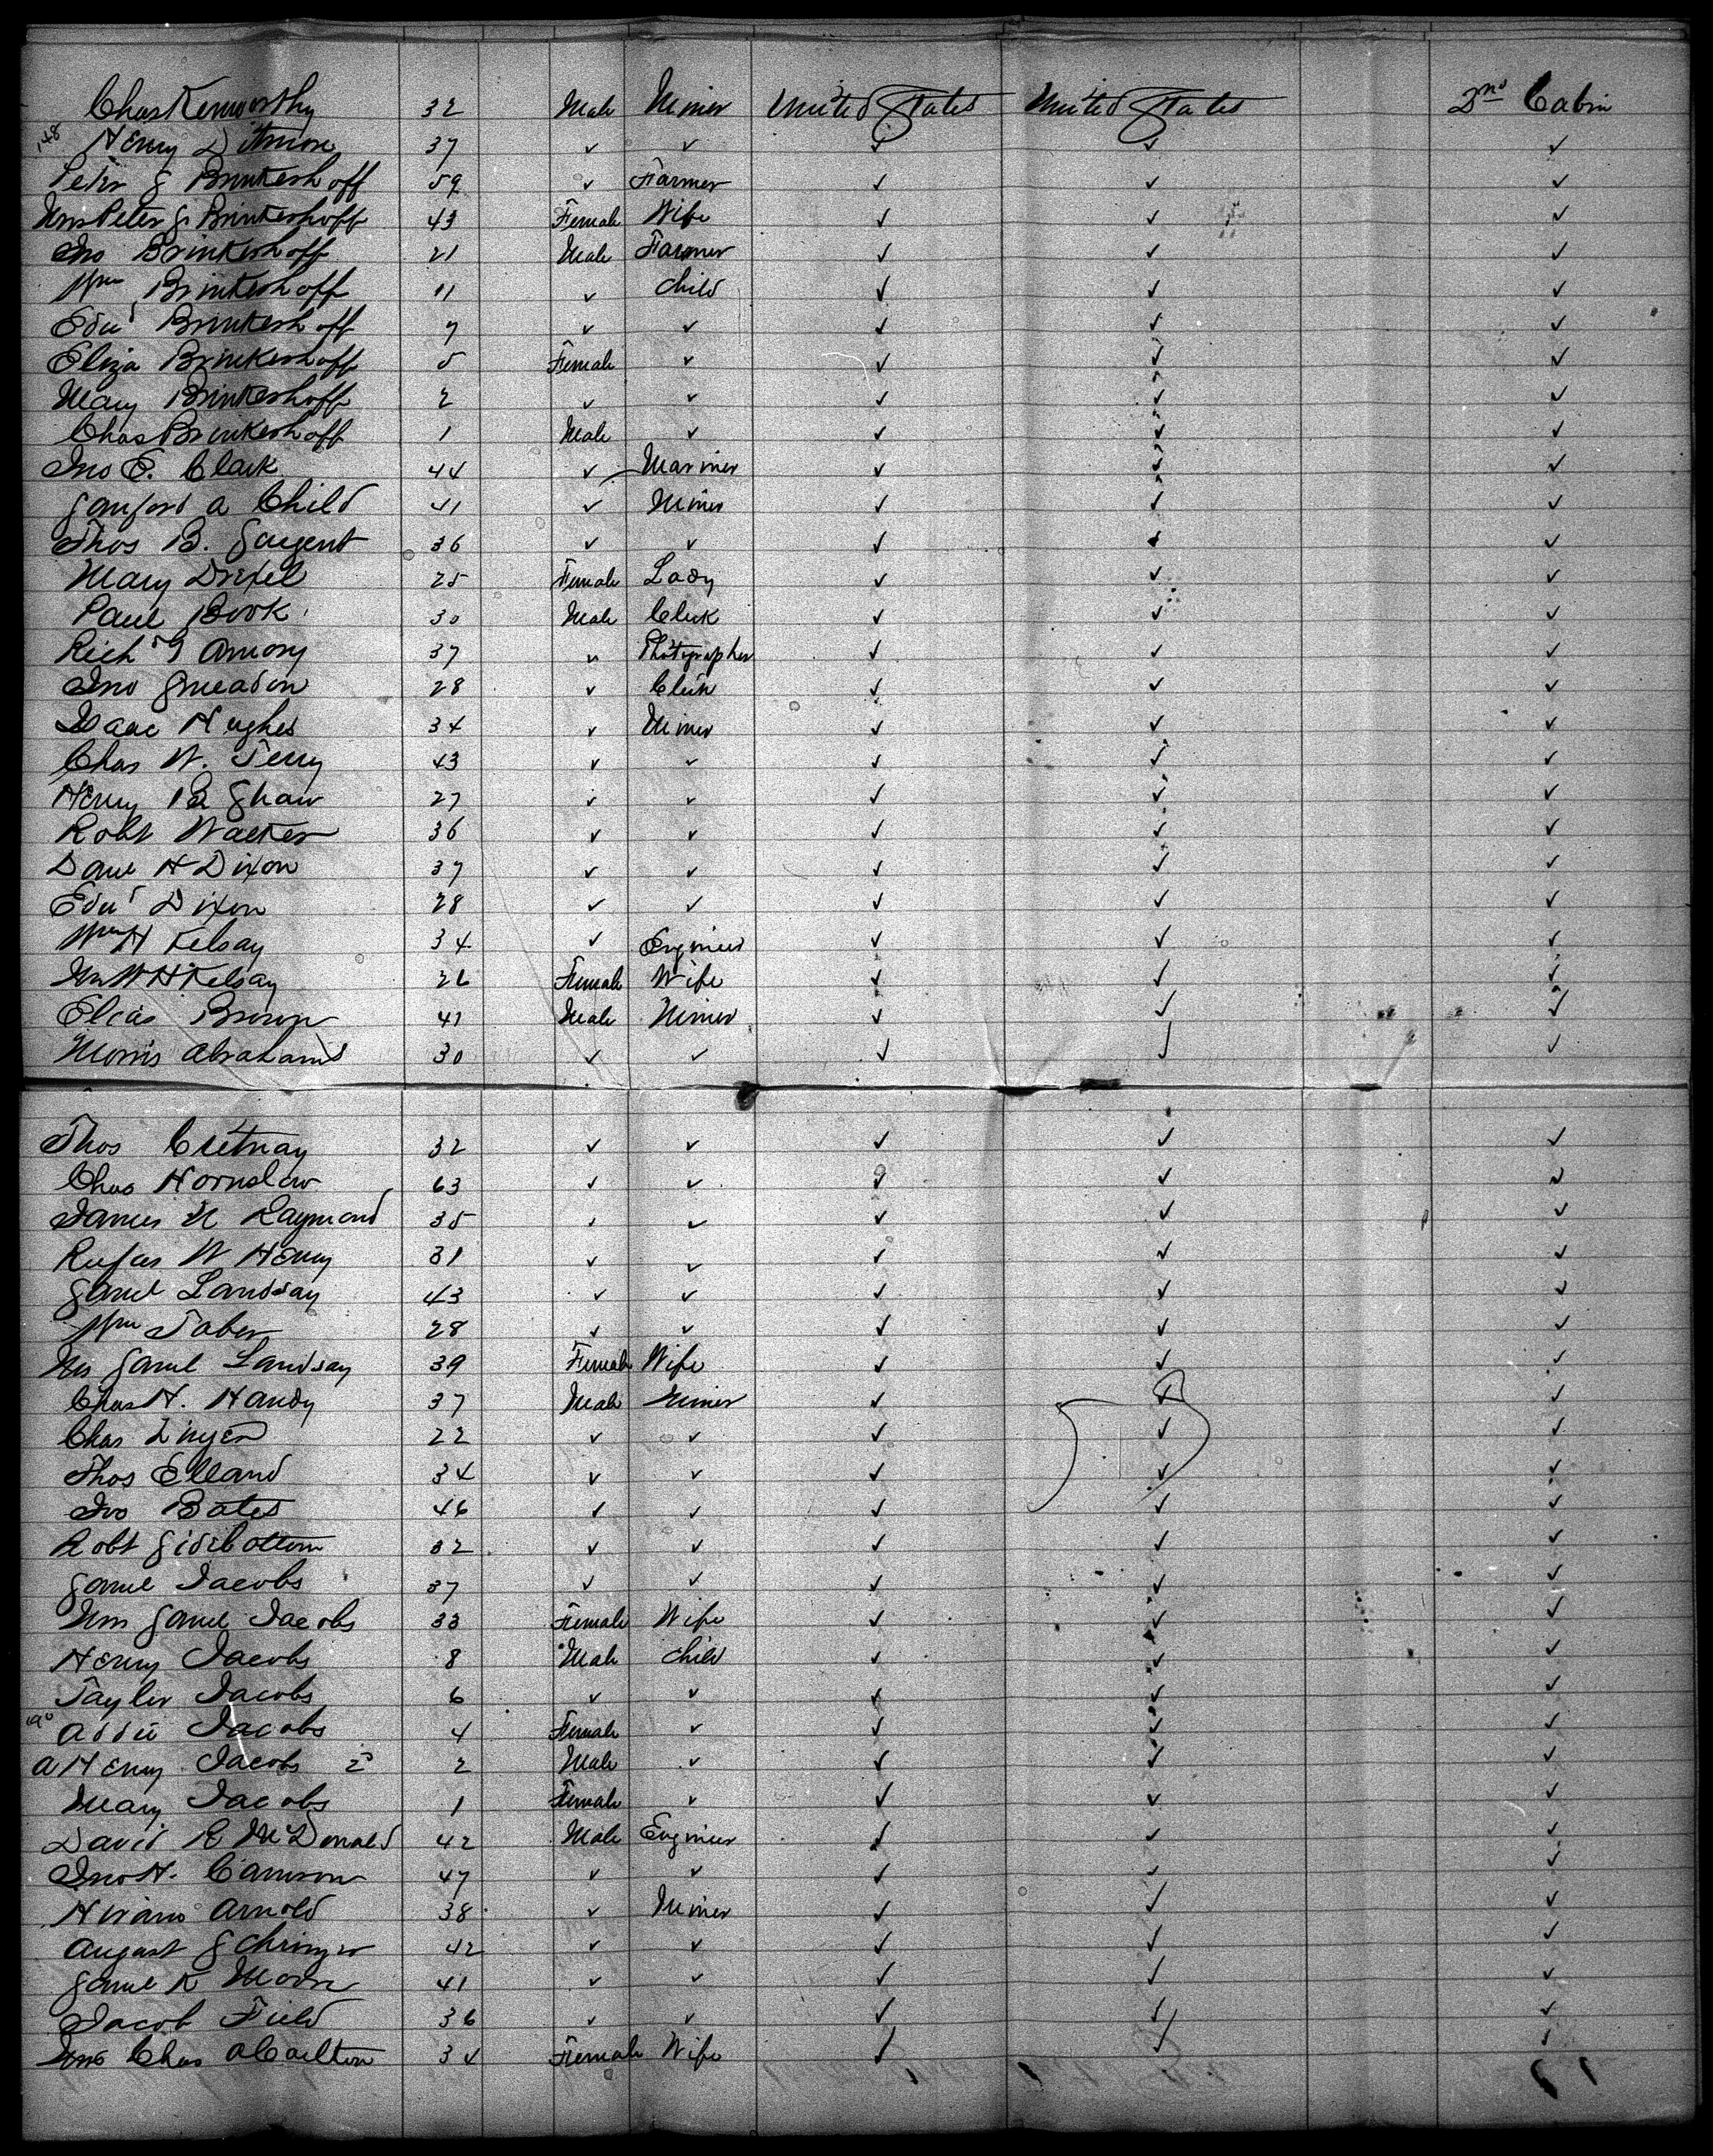 Chas Kenworthy 32 Male Miner United States United States 2nd Cabin
148 Henry Ditmore 37 ✓ ✓ ✓ ✓ ✓
Peter S Brinkerhoff 59 ✓ Farmer ✓ ✓ ✓
Mrs Peter S Brinkerhoff 43 Female Wife ✓ ✓ ✓
Jno Brinkerhoff 21 Male Farmer ✓ ✓ ✓
Wm Brinkerhoff 11 ✓ Child ✓ ✓ ✓
Edwd Brinkerhoff 7 ✓ ✓ ✓ ✓ ✓
Eliza Brinkerhoff 5 Female ✓ ✓ ✓ ✓
Mary Brinkerhoff 2 ✓ ✓ ✓ ✓ ✓
Chas Brinkerhoff 1 Male ✓ ✓ ✓ ✓
Jno E. Clark 44 ✓ Mariner ✓ ✓ ✓
Sanford A Child 41 ✓ Miner ✓ ✓ ✓
Thos B. Sargent 36 ✓ ✓ ✓ ✓ ✓
Mary Drexel 25 Female Lady ✓ ✓ ✓
Paul Book 30 Male Clerk ✓ ✓ ✓
Richd G Amory 37 ✓ Photographer ✓ ✓ ✓
Jno Smeadon 28 ✓ Clerk ✓ ✓ ✓
Isaac Hughes 34 ✓ Miner ✓ ✓ ✓
Chas W. Terry 43 ✓ ✓ ✓ ✓ ✓
Henry B Shaw 27 ✓ ✓ ✓ ✓ ✓
Robt Walker 36 ✓ ✓ ✓ ✓ ✓
Danl H Dixon 37 ✓ ✓ ✓ ✓ ✓
Edwd Dixon 28 ✓ ✓ ✓ ✓ ✓
Wm H Kelsay 34 ✓ Engineer ✓ ✓ ✓
Mrs W H Kelsay 26 Female Wife ✓ ✓ ✓
Elias Brown 41 Male Miner ✓ ✓ ✓
Morris Abrahams 30 ✓ ✓ ✓ ✓ ✓
Thos Cretnay 32 ✓ ✓ ✓ ✓ ✓
Chas Hornslaw 63 ✓ ✓ ✓ ✓
James N Raymond 35 ✓ ✓ ✓ ✓ ✓
Rufus W Henry 31 ✓ ✓ ✓ ✓ ✓
Saml Landsay 43 ✓ ✓ ✓ ✓ ✓
Wm Taber 28 ✓ ✓ ✓ ✓ ✓
Mrs Saml Landsay 39 Female Wife ✓ ✓ ✓
Chas H. Handy 37 Male Miner ✓ ✓ ✓
Chas 22 ✓ ✓ ✓ ✓ ✓
Thos Elland 34 ✓ ✓ ✓ ✓ ✓
Jno Bates 46 ✓ ✓ ✓ ✓ ✓
Robt Sidebottom 32 ✓ ✓ ✓ ✓ ✓
Saml Jacobs 37 ✓ ✓ ✓ ✓ ✓
Mrs Saml Jacobs 33 Female Wife ✓ ✓ ✓
Henry Jacobs 8 Male Child ✓ ✓ ✓
Taylor Jacobs 6 ✓ ✓ ✓ ✓ ✓
190 Addie Jacobs 4 Female ✓ ✓ ✓ ✓
A Henry Jacobs 2d 2 Male ✓ ✓ ✓ ✓
Mary Jacobs 1 Female ✓ ✓ ✓ ✓
David R McDonald 42 Male Engineer ✓ ✓ ✓
Jno H. Camron 47 ✓ ✓ ✓ ✓ ✓
Hiram Arnold 38 ✓ Miner ✓ ✓ ✓
August Schringer 42 ✓ ✓ ✓ ✓ ✓
Saml K Moore 41 ✓ ✓ ✓ ✓ ✓
Jacob Field 36 ✓ ✓ ✓ ✓ ✓
Mrs Chas A Carlton 34 Female Wife ✓ ✓ ✓